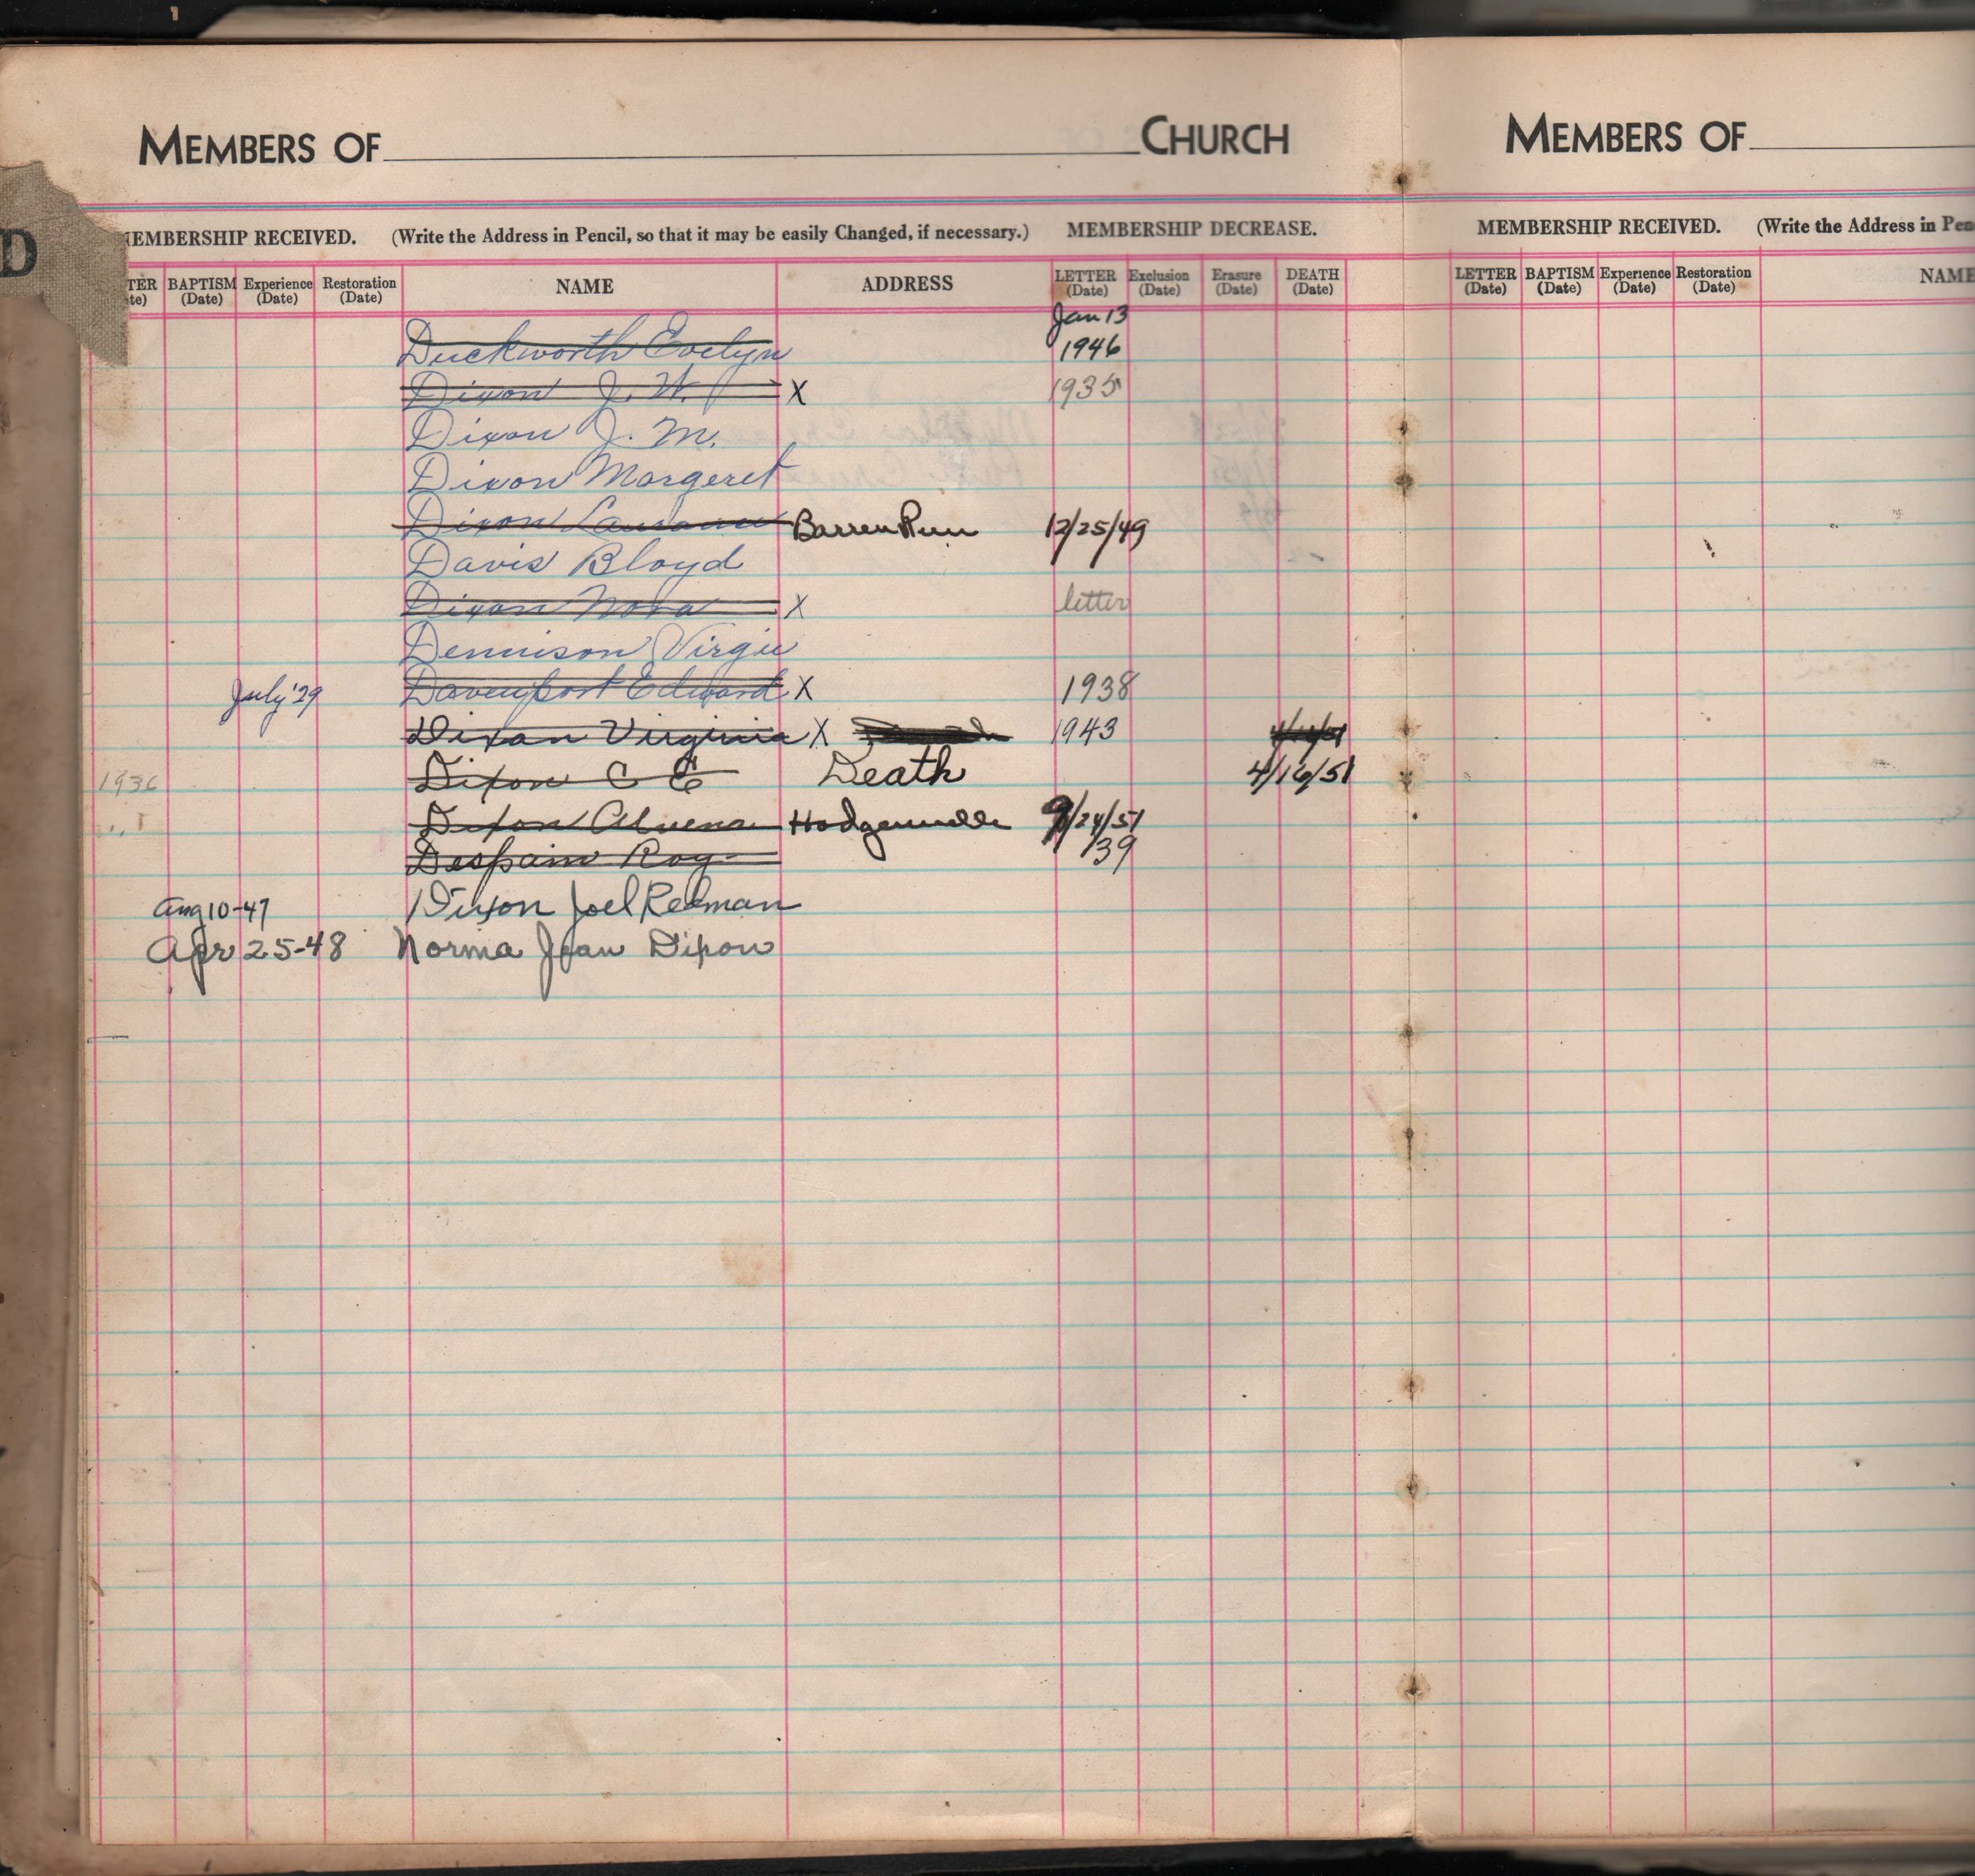 MEMBERS OF CHURCH MEMBERS OF
D
MEMBERSHIP RECEIVED. (Write the Address in Pencil, so that it may be easily Changed, if necessary.) MEMBERSHIP DECREASE. MEMBERSHIP RECEIVED. (Write the Address in Pen
TER BAPTISM Experience Restoration NAME ADDRESS LETTER Exclusion Erasure DEATH LETTER BAPTISM Experience Restoration NAME
te) (Date) (Date) (Date) (Date) (Date) (Date) (Date) (Date) (Date) (Date) (Date)
Jan 13
Duckworth Evelyn 1946
Dixon J. W. X 1935
Dixon J. M.
Dixon Margeret
Dixon Barren Run 12/25/49
Davis Bloyd
Dixon Nora X letter
Dennison Virgie
July '29 Davenport Edward X 1938
Dixon Virginia X 1943
1936 Dixon C E Death 4/16/51
" " Dixon Alvena Hodgenville 9/24/51
Despain Roy 39
Aug 10-47 Dixon Joel Redman
Apr 25-48 Norma Jean Dixon